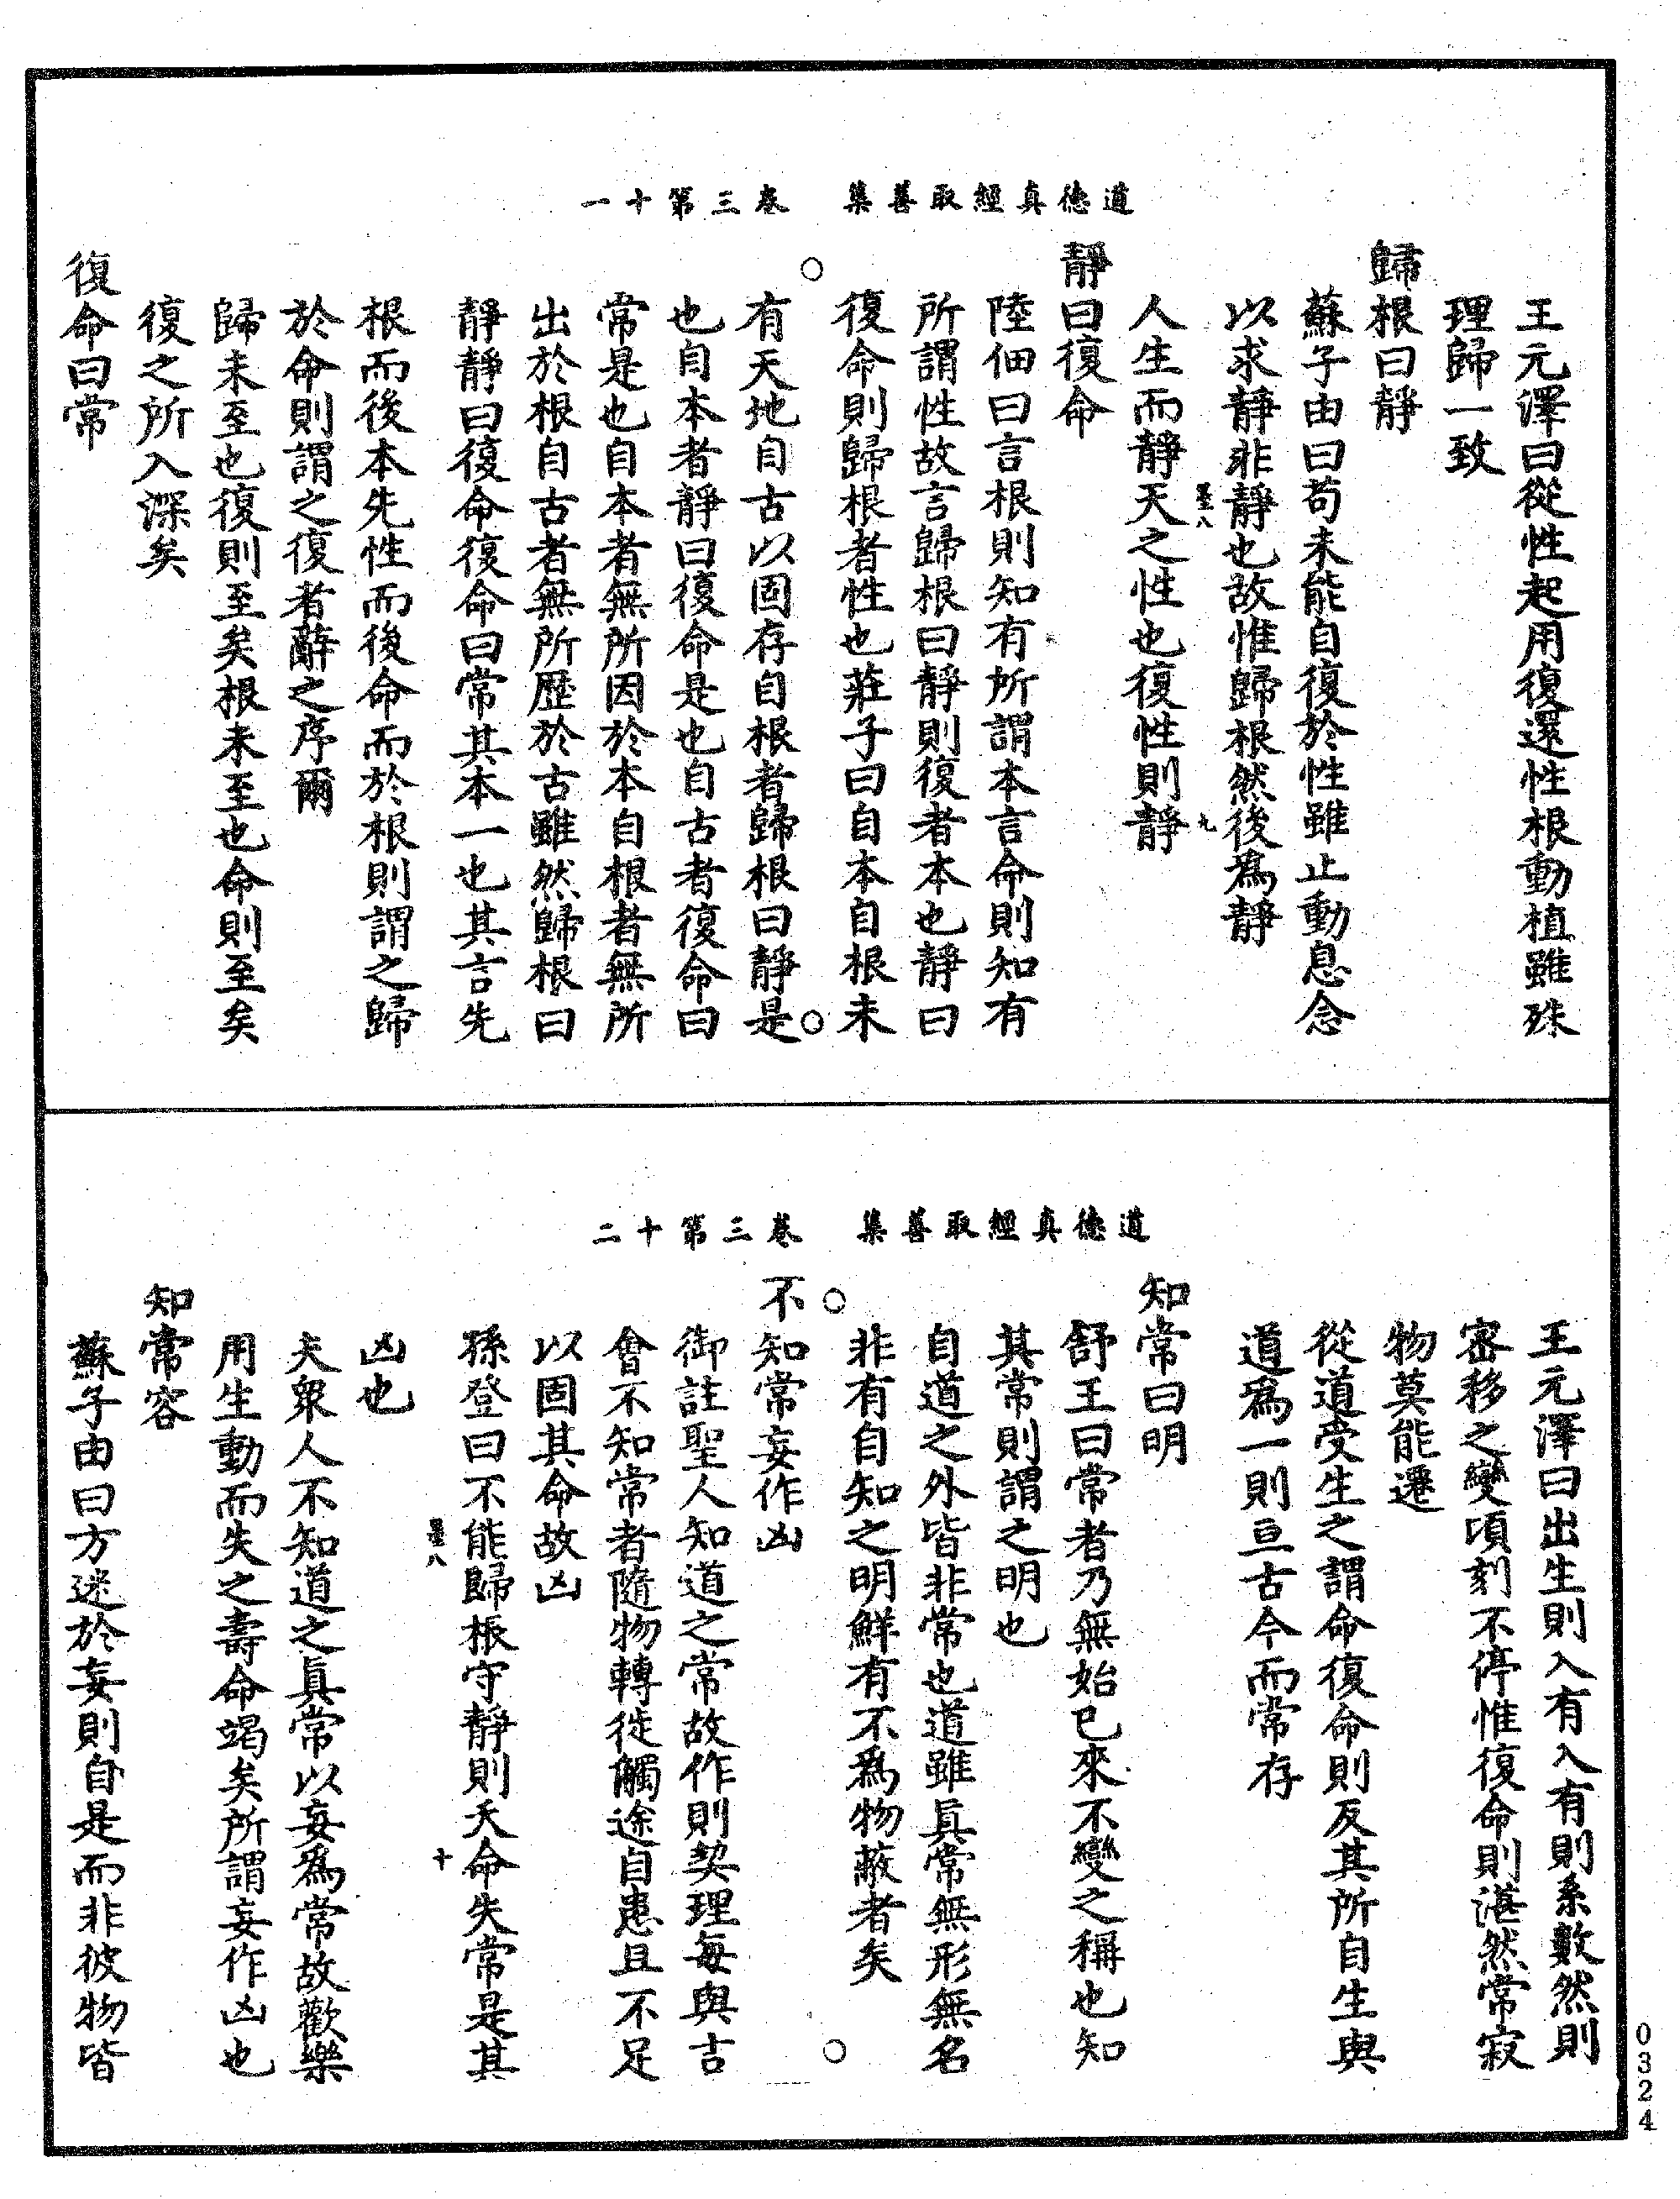 道德真經取善集　卷三第十一
王元澤曰從性起用復還性根動植雖殊
理歸一致
歸根曰靜
蘇子由曰苟未能自復於性雖止動息念
以求靜非靜也故惟歸根然後爲靜
墨八　九
人生而靜天之性也復性則靜
靜曰復命
陸佃曰言根則知有所謂本言命則知有
所謂性故言歸根曰靜則復者本也靜曰
復命則歸根者性也莊子曰自本自根未
○　○
有天地自古以固存自根者歸根曰靜是
也自本者靜曰復命是也自古者復命曰
常是也自本者無所因於本自根者無所
出於根自古者無所歷於古雖然歸根曰
靜靜曰復命復命曰常其本一也其言先
根而後本先性而後命而於根則謂之歸
於命則謂之復者辭之序爾
歸未至也復則至矣根未至也命則至矣
復之所入深矣
復命曰常
道德真經取善集　卷三第十二
王元澤曰出生則入有入有則系數然則
密移之變頃刻不停惟復命則湛然常寂
物莫能遷
從道受生之謂命復命則反其所自生與
道爲一則亘古今而常存
知常曰明
舒王曰常者乃無始已來不變之稱也知
其常則謂之明也
自道之外皆非常也道雖眞常無形無名
非有自知之明鮮有不爲物蔽者矣
○　○
不知常妄作凶
御註聖人知道之常故作則契理每與吉
會不知常者隨物轉徙觸途自患且不足
以固其命故凶
孫登曰不能歸根守靜則夭命失常是其
墨八　十
凶也
夫衆人不知道之眞常以妄爲常故歡樂
用生動而失之壽命竭矣所謂妄作凶也
知常容
蘇子由曰方迷於妄則自是而非彼物皆
0324